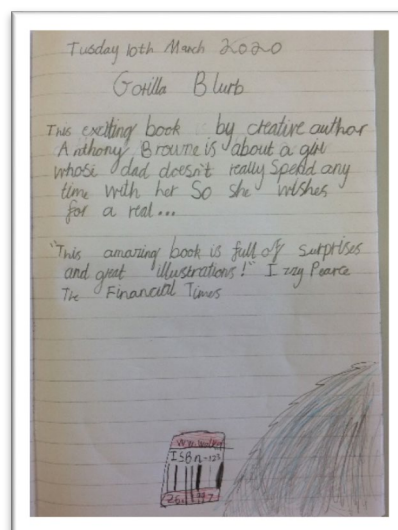 Tusday 10th March 2020
Gorilla Blurb
This exciting book by creative author
Anthony Browne is about a girl
whose dad doesn't really Spend any
time with her So she wishes
for a real...
"This amazing book is full of surprises
and great illustrations!" Izzy Pearce
The Financial Times
ISBn-123